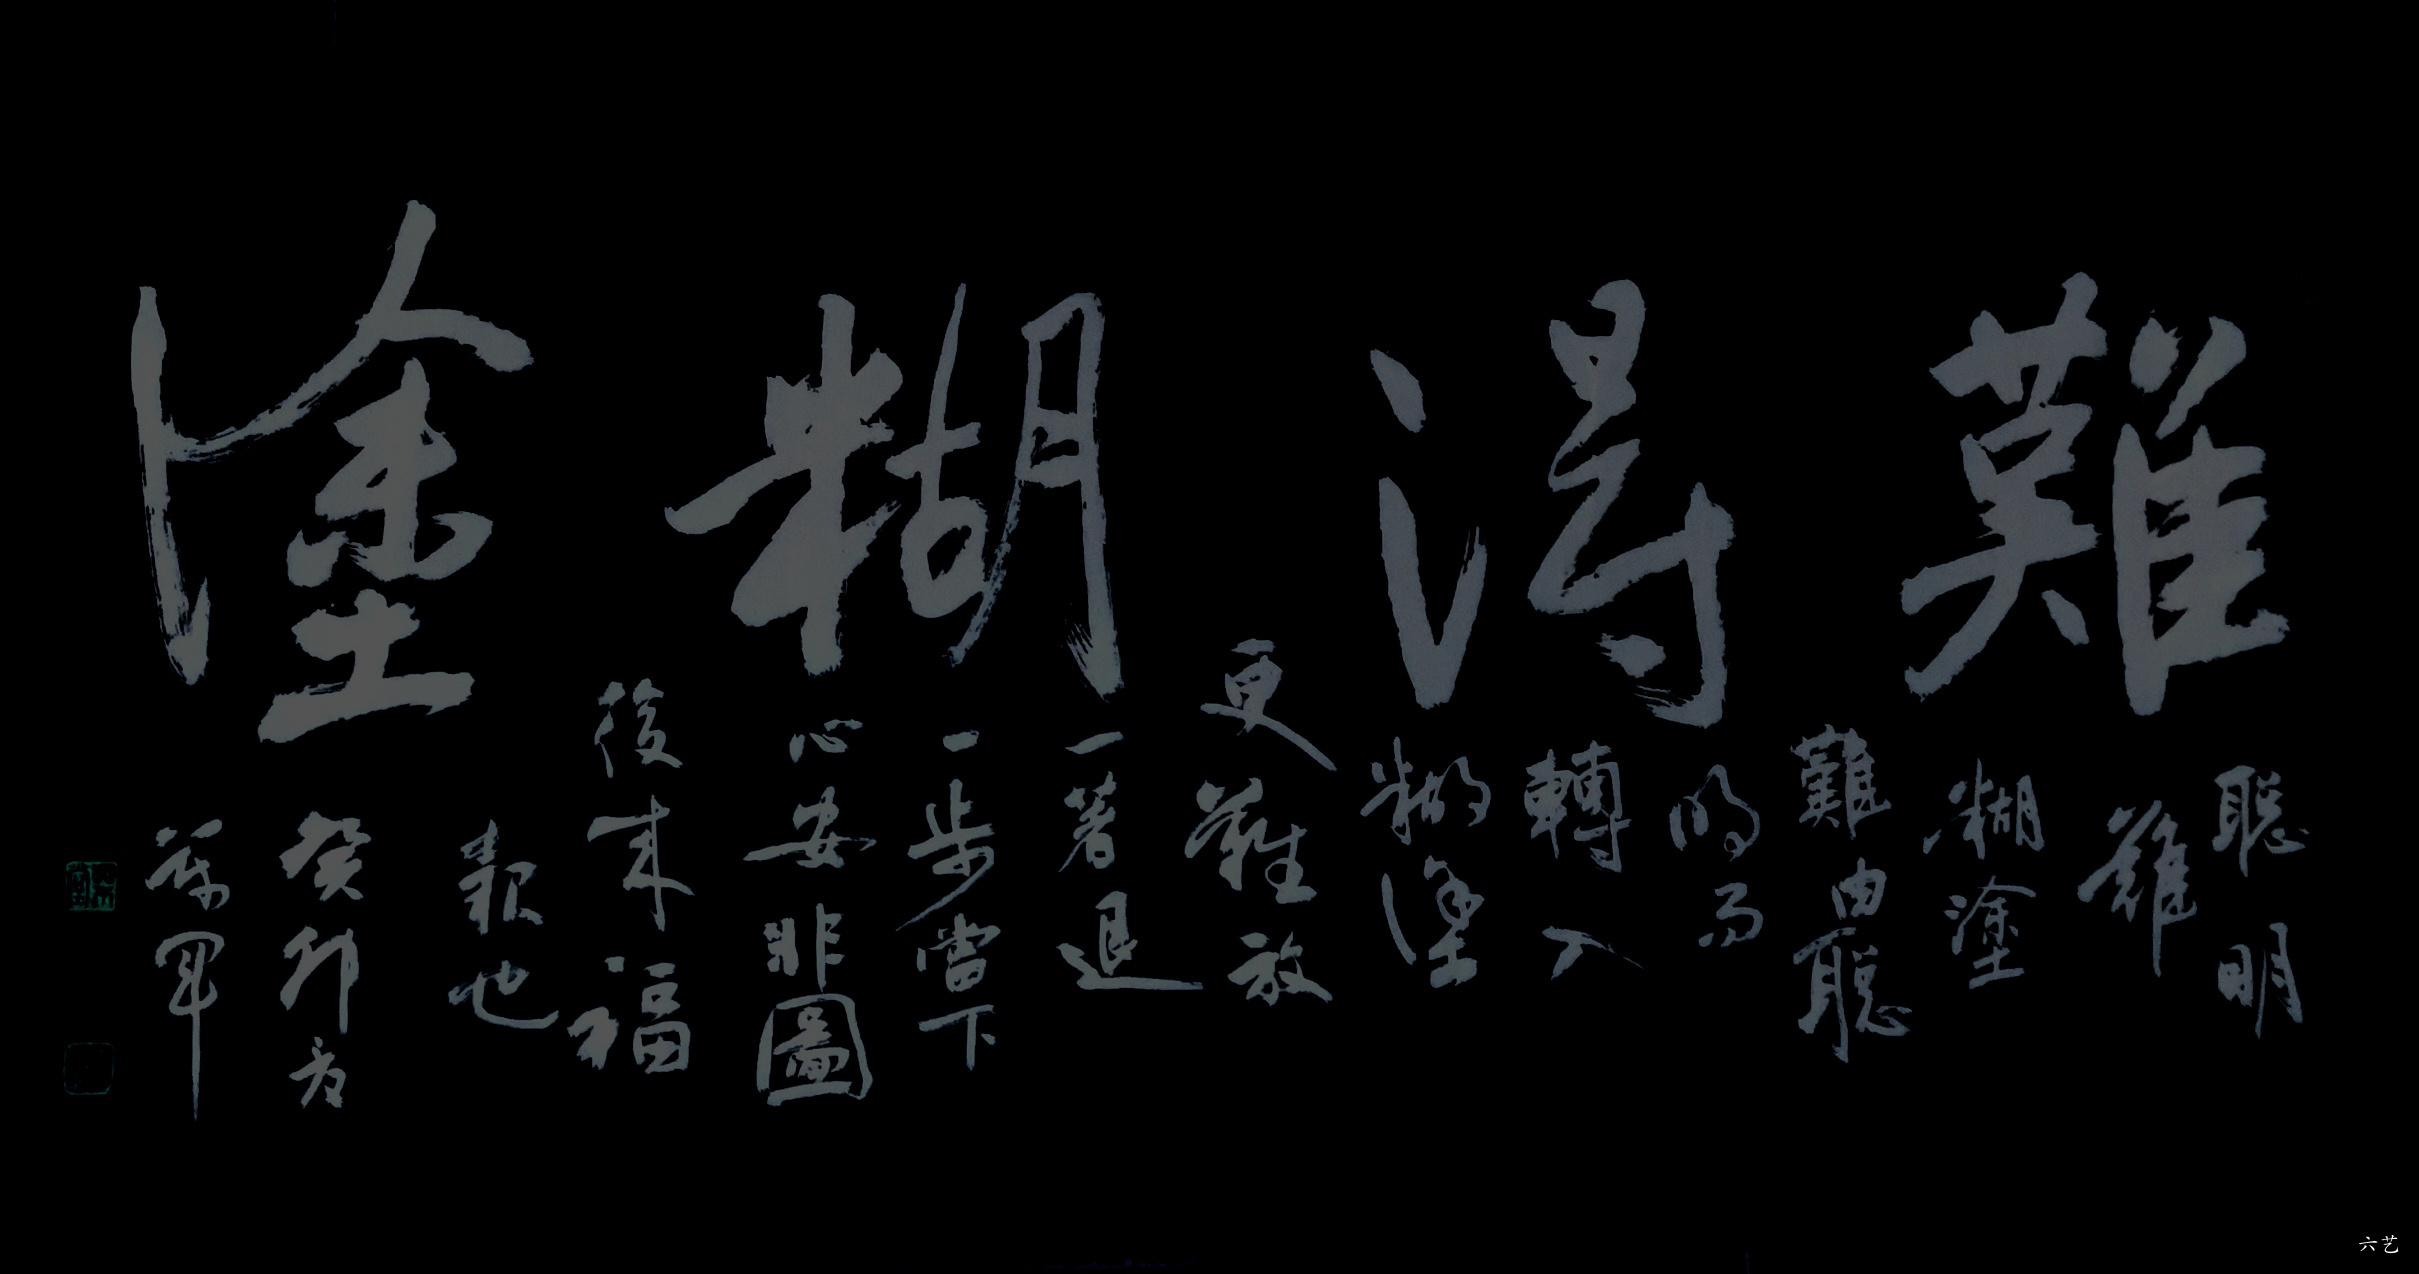 難得糊塗
聰明
難
糊塗
難由聰
明而
轉入
糊塗
更難放
一著退
一步當下
心安非圖
後来福
報也
癸卯方
六艺